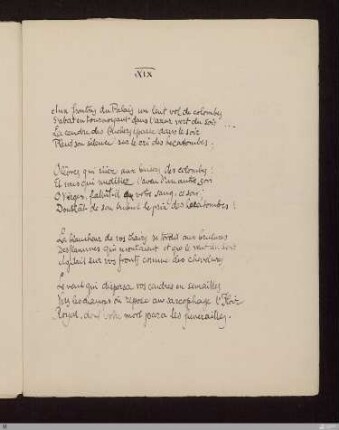 XIX
Aux frontons du Palais un lent vol de colombes
S'abat en tournoyant dans l'azur vert du soir ...
La cendre des bûchers dans le soir
sur le cri des hécatombes ;
Vierges qui riiez aux baisers des colombes !
Et vous qui l'aveu d'un autre soir
O Vierges, fallait-il votre sang, ce soir
de son le prix des hécatombes !
La blancheur de vos chairs se tordit aux brûlures
Des flammes qui montaient et que le vent du soir
Agitait sur vos fronts comme des chevelures
Le vent qui dispersa vos cendres en semailles
les champs où repose au sarcophage l'Hoir
Royal, dont votre mort para les funérailles.